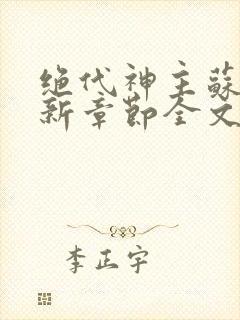 绝代神主蘇
新章節全文
李正宇